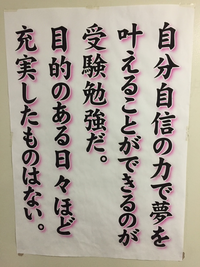 自分自信の力で夢を
叶えることができるのが
受験勉強だ。
目的のある日々ほど
充実したものはない。